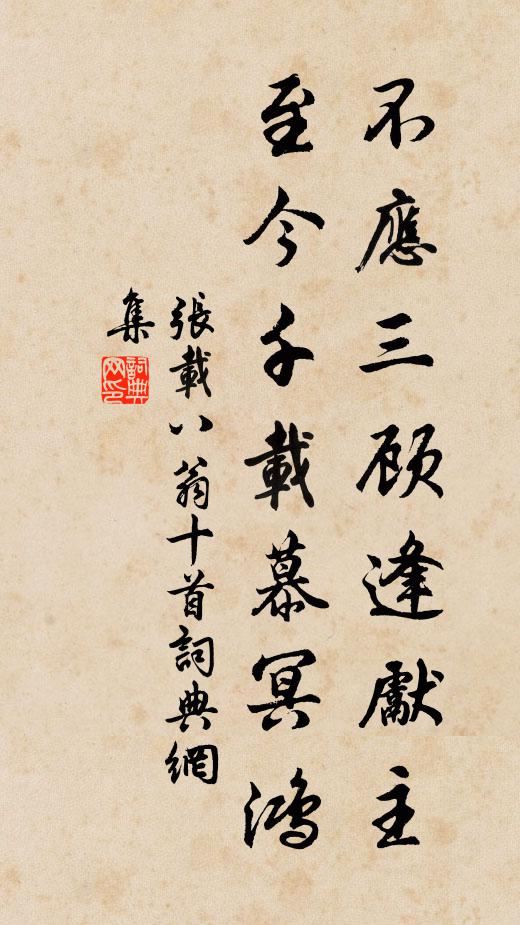 不應三顾逢獻主
至今千載慕冥鴻
張載八翁十首詞典網
集
詞典
网印